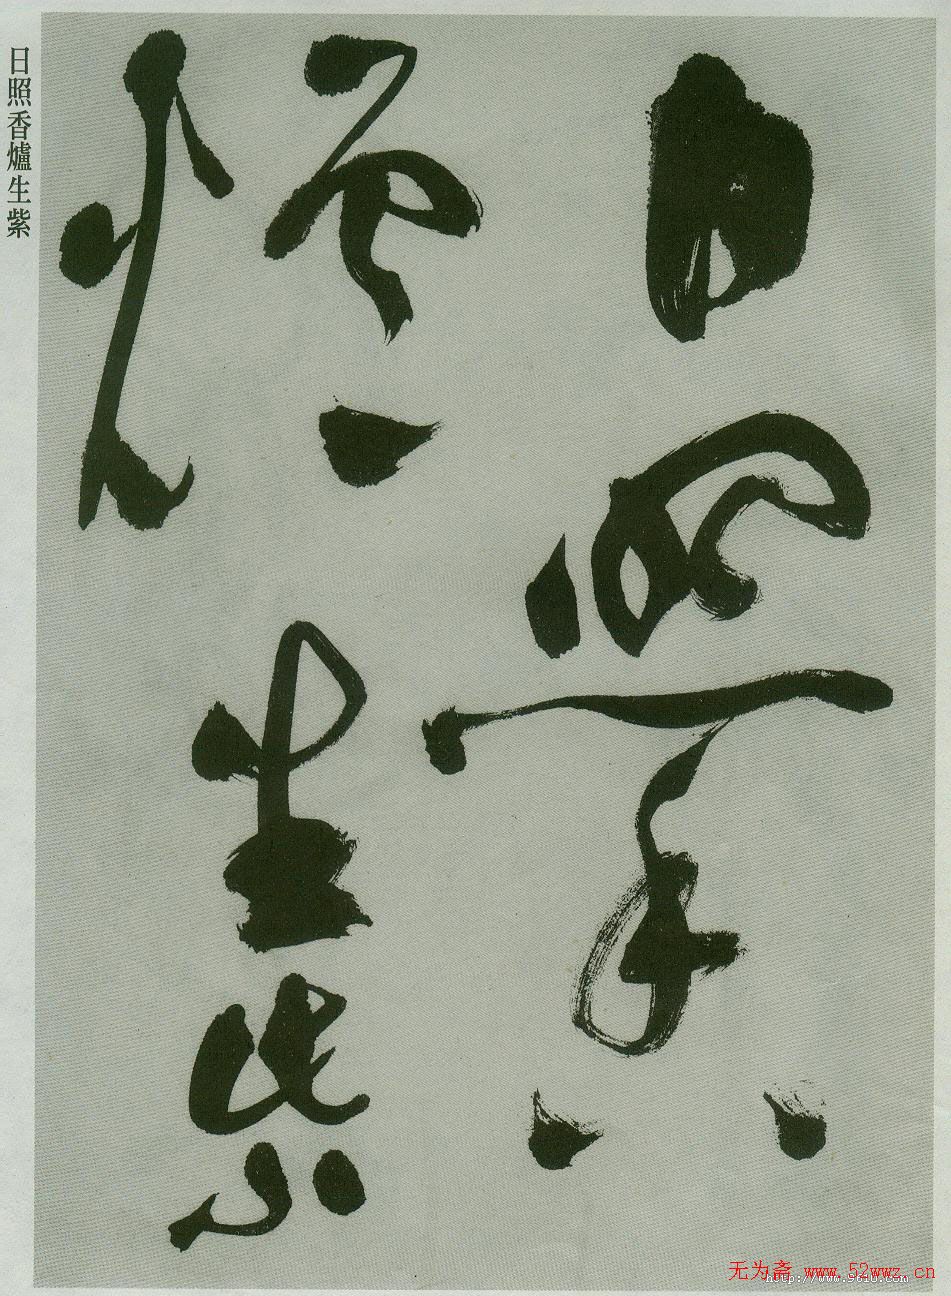 日照香
爐生紫
日照香爐生紫
无为斋 www.52wwz.cn